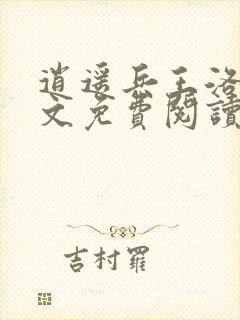 逍遥兵王洛
文免費閱讀
吉村羅